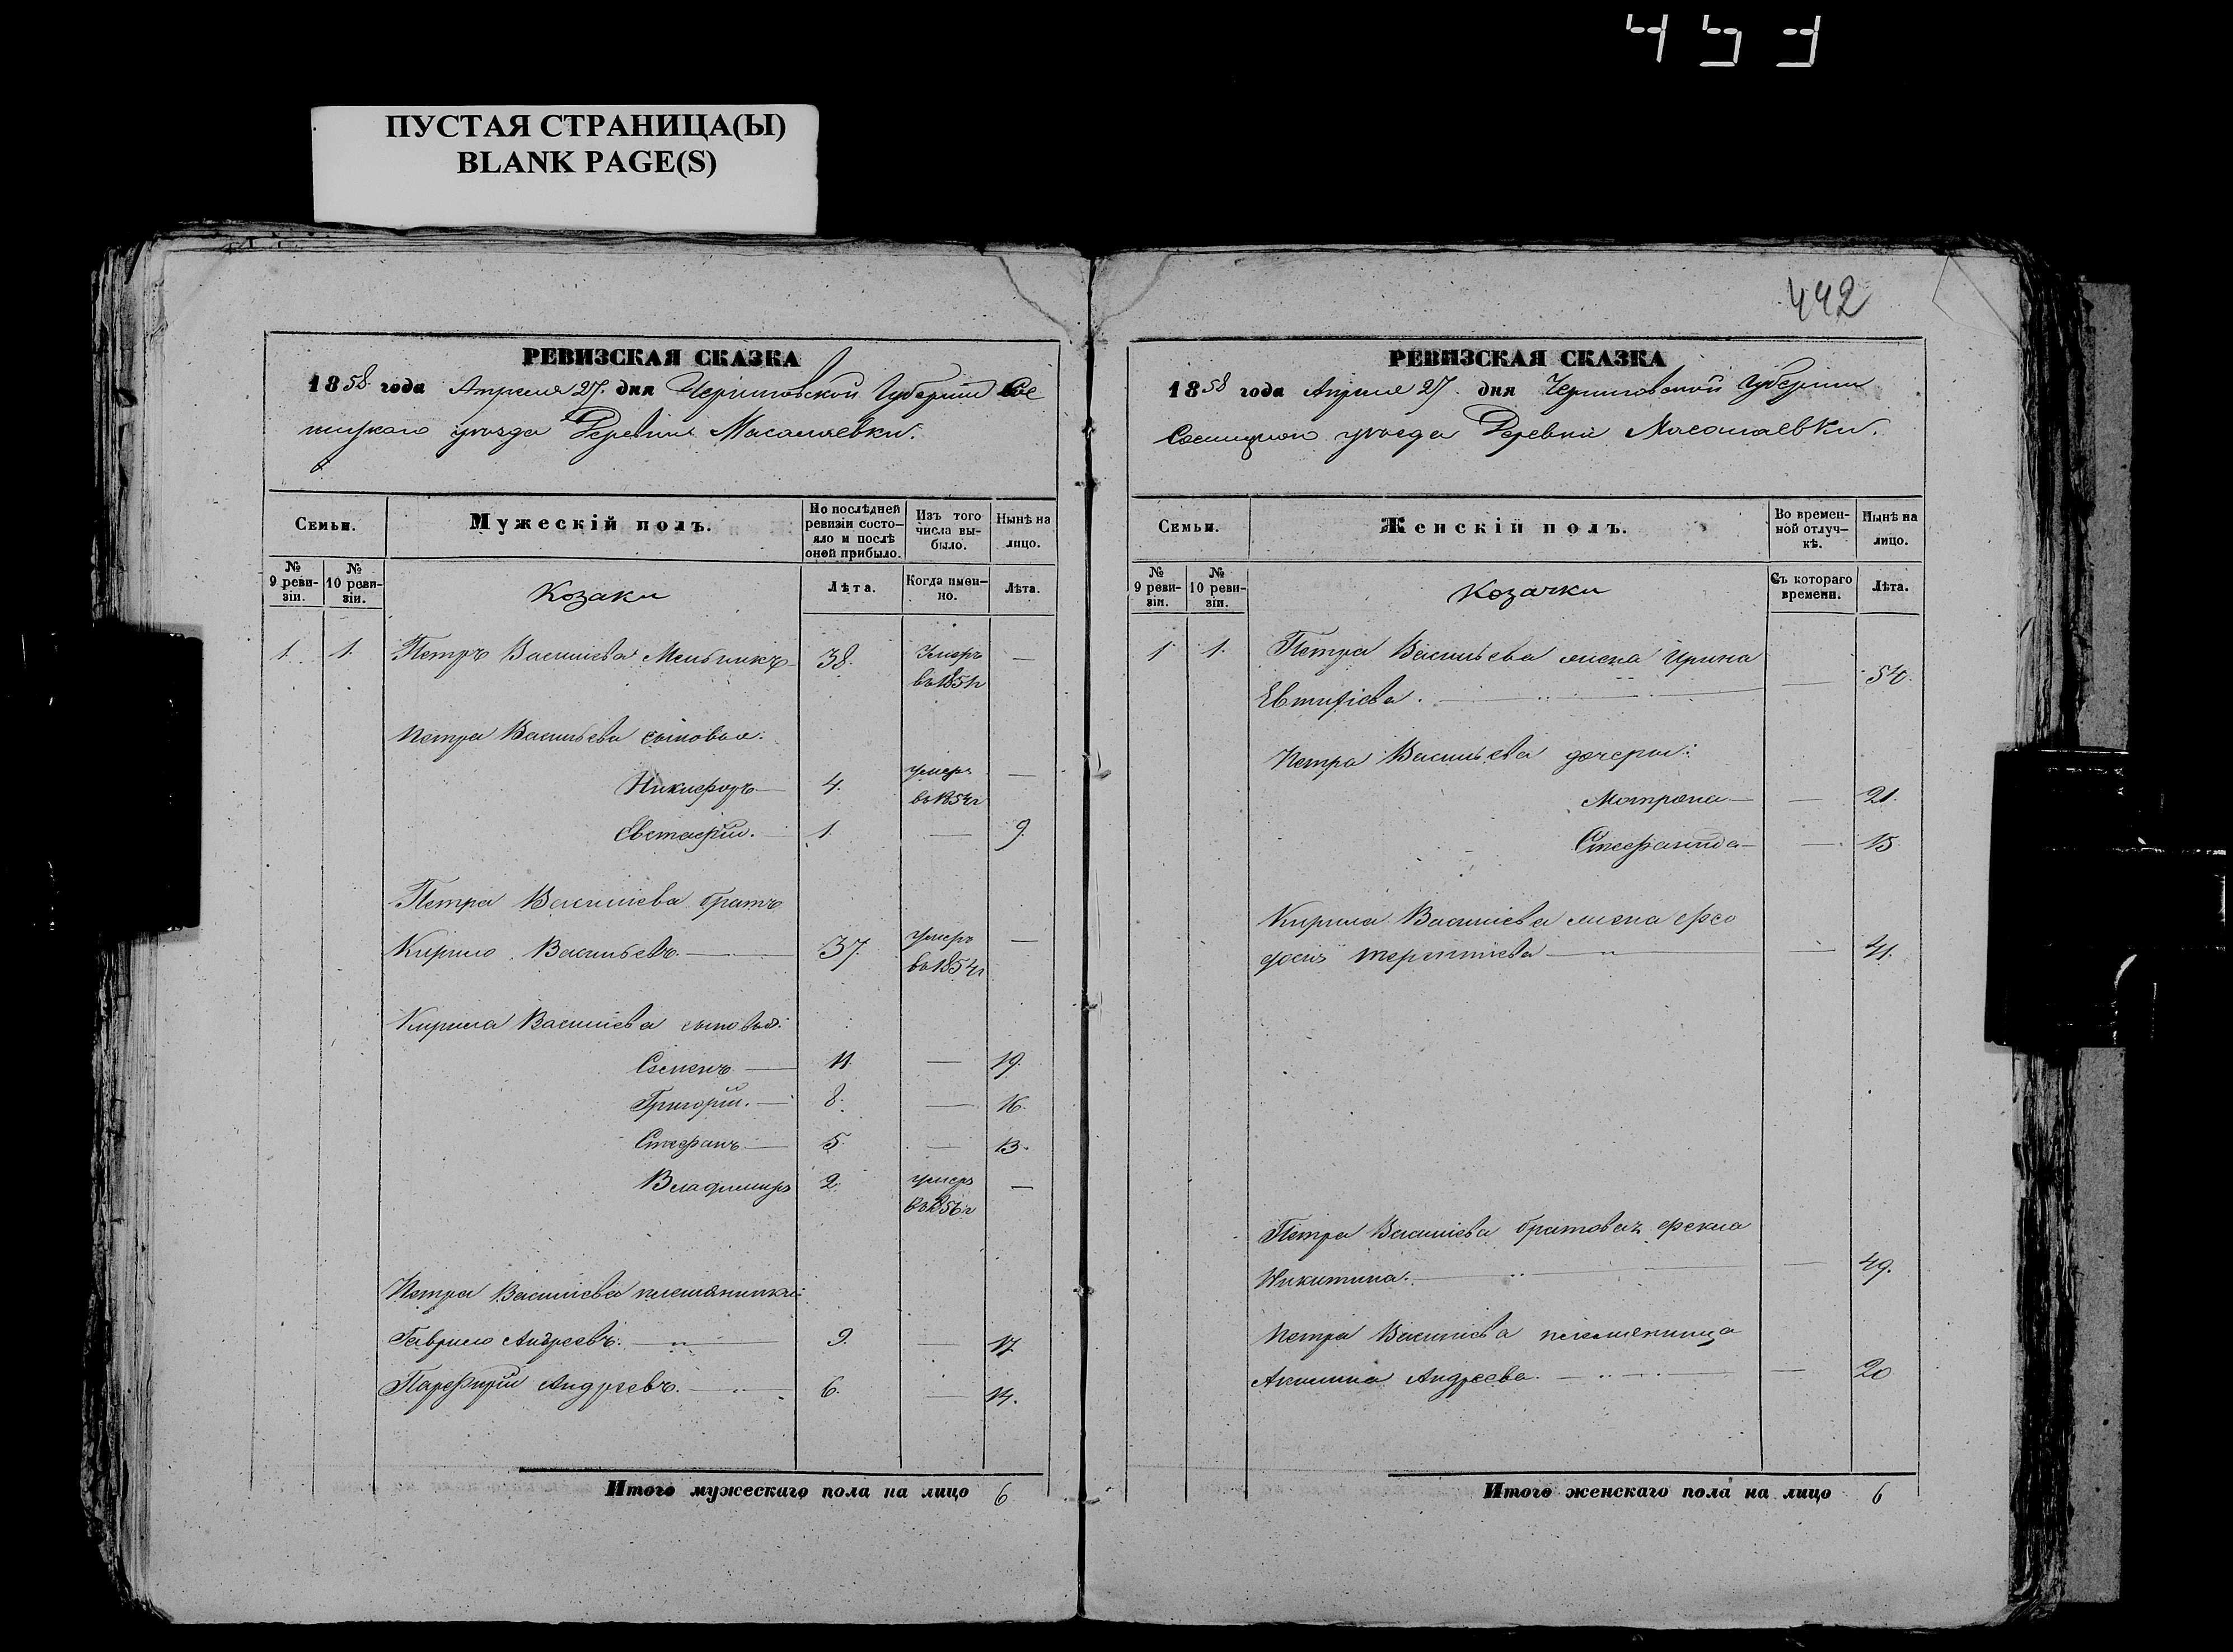 459
ПУСТАЯ СТРАНИЦА(Ы)
BLANK PAGE(S)
РЕВИЗСКАЯ СКАЗКА
1858 года Апреля 27. дня Черниговской Губернии Сос
ницкаго уезда Деревни
Семьи.
Мужескій полъ.
По послѣдней
ревизіи состо-
яло и послѣ
оней прибыло.
Изъ того
числа вы-
было.
Нынѣ на
лицо.
№
9 реви-
зіи.
№
10 реви-
зіи.
Козаки
Лѣта.
Когда имен-
но.
Лѣта.
1. 1. Петръ Васильевъ Мельникъ 38. Умеръ —
въ 1851г
Петра Васильева сыновья:
Никифоръ — 4. умеръ —
въ 1854г
Евстафій. — 1. — 9.
Петра Васильева братъ
Кирило Васильевъ. — 37. умеръ —
въ 1854г
Кирила Васильева сыновья:
Семенъ — 11 — 19.
Григорій. — 8. — 16.
Стефанъ — 5. — 13.
Владимиръ 2. умеръ —
въ 1856г
Петра Васильева племянники:
Гаврило Андреевъ. — 9. — 17.
Парфирій Андреевъ. — 6. — 14.
Итого мужескаго пола на лицо 6
442
РЕВИЗСКАЯ СКАЗКА
1858 года Апреля 27. дня Черниговской Губернии
Сосницкого уезда Деревни
Семьи.
Женскій полъ.
Во времен-
ной отлуч-
кѣ.
Нынѣ на
лицо.
№
9 реви-
зіи.
№
10 реви-
зіи.
Козачки
Съ котораго
времени.
Лѣта.
1 1. Петра Васильева жена Ирина
Евтифіева. — — 54.
Петра Васильева дочери:
Мотрона — — 21.
Стефанида — — 15.
Кирила Васильева жена Фео
досія Терентіева — — 41.
Петра Васильева братовая Фекла
Никитина. — — 49.
Петра Васильева племянница
Акилина Андреева. — — 20
Итого женскаго пола на лицо 6